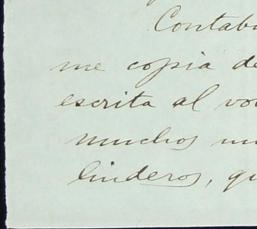 Contab
me copia de
escrita al vo
muchos
linderos, qu